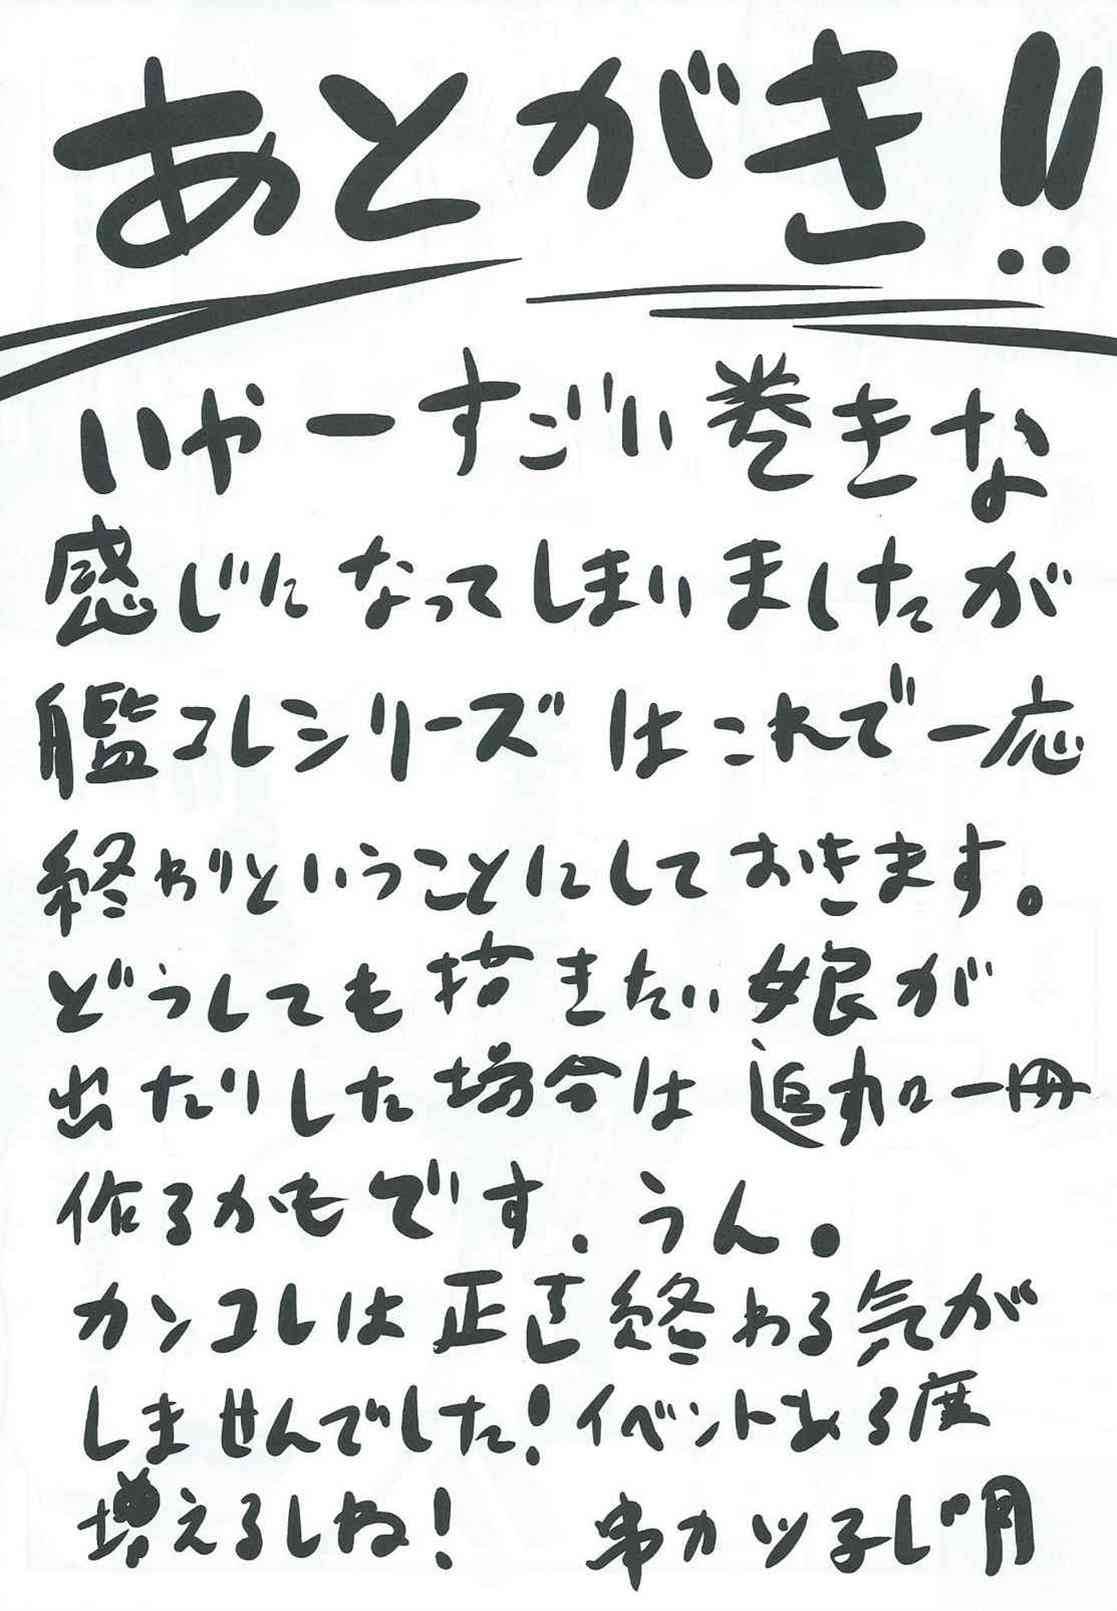 あとがき!!
いやーすごい巻きな
感じになってしまいましたが
艦コレシリーズはこれで一応
終わりということにしておきます。
どうしても描きたい娘が
出たりした場合は追加一冊
作るかもです。うん。
カンコレは正直終わる気が
しませんでした!イベントある度
増えるしね! 串カツ子じ明